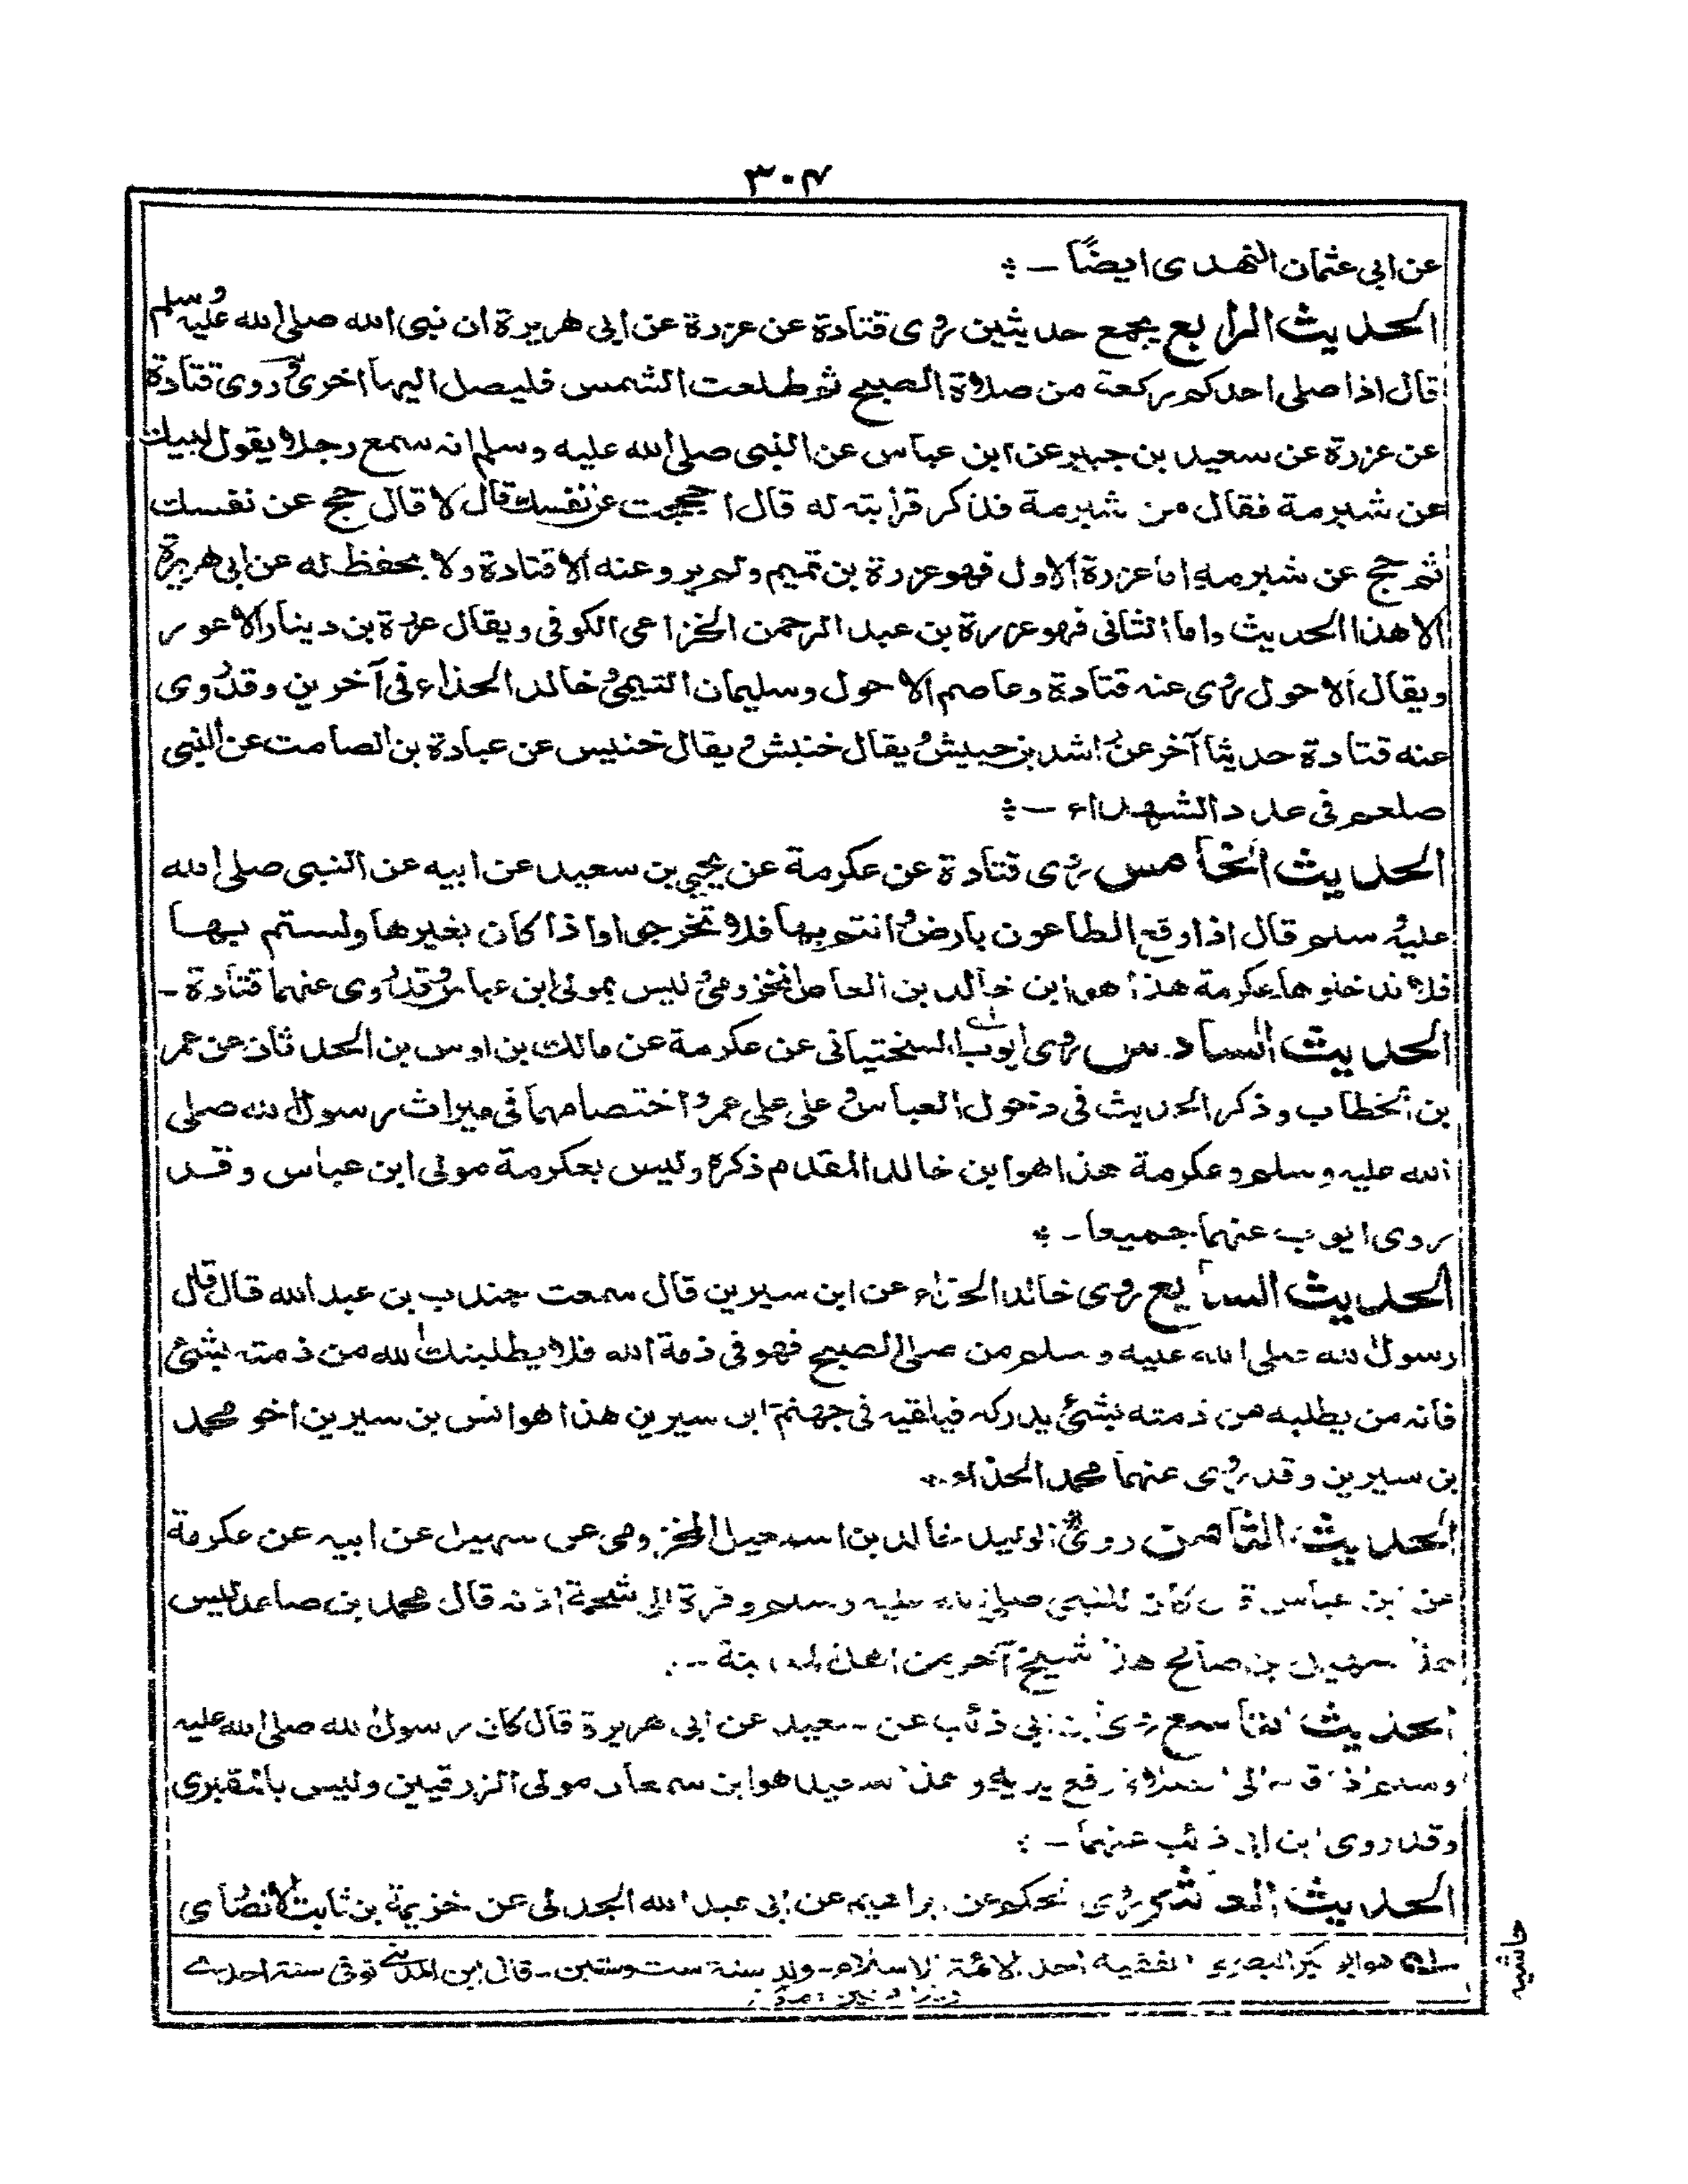 ٣٠٤
عن ابي عثمان النهدى ايضًا — ؞
الحديث الرابع يجمع حديثين روى قتادة عن عزرة عن ابى هريرة ان نبى الله صلى الله عليه وسلم
قال اذا صلى احدكم ركعة من صلاة الصبح ثم طلعت الشمس فليصل اليها اخرى وروى قتادة
عن عزرة عن سعيد بن جبير عن ابن عباس عن النبى صلى الله عليه وسلم انه سمع رجلا يقول لبيك
عن شبرمة فقال من شبرمة فذكر قرابته له قال احججت عن نفسك قال لا قال حج عن نفسك
ثم حج عن شبرمه اما عزرة الاول فهو عزرة بن تميم ولم يرو عنه الا قتادة ولا يحفظ له عن ابى هريرة
الا هذا الحديث واما الثانى فهو عزرة بن عبد الرحمن الخزاعى الكوفى ويقال عزرة بن دينار الاعور
ويقال الاحول روى عنه قتادة وعاصم الاحول وسليمان التيمى وخالد الحذاء فى آخرين وقد روى
عنه قتادة حديثا آخر عن راشد بن حبيش ويقال خنبش ويقال خنيس عن عبادة بن الصامت عن النبى
صلعم فى عدد الشهداء — ؞
الحديث الخامس روى قتادة عن عكرمة عن يحيى بن سعيد عن ابيه عن النبى صلى الله
عليه وسلم قال اذا وقع الطاعون بارض وانتم بها فلا تخرجوا واذا كان بغيرها ولستم بها
فلا تدخلوها عكرمة هذا هو ابن خالد بن العاص المخزومى وليس بمولى ابن عباس وقد روى عنهما قتادة -
الحديث السادس روى ايوب السختيانى عن عكرمة عن مالك بن اوس بن الحدثان عن عمر
بن الخطاب وذكر الحديث فى دخول العباس وعلى على عمر واختصامهما فى ميراث رسول الله صلى
الله عليه وسلم وعكرمة هذا هو ابن خالد المقدم ذكره وليس بعكرمة مولى ابن عباس وقد
روى ايوب عنهما جميعا - ؞
الحديث السابع روى خالد الحذاء عن ابن سيرين قال سمعت جندب بن عبد الله قال قال
رسول الله صلى الله عليه وسلم من صلى الصبح فهو فى ذمة الله فلا يطلبنك الله من ذمته بشئ
فانه من يطلبه من ذمته بشئ يدركه فيلقيه فى جهنم ابن سيرين هذا هو انس بن سيرين اخو محمد
بن سيرين وقد روى عنهما محمد الحذاء ؞
الحديث الثامن روى الوليد خالد بن اسمعيل المخزومى عن سهيل عن ابيه عن عكرمة
عن ابن عباس قال كان للنبى صلى الله عليه وسلم وفرة الى شحمة اذنه قال محمد بن صاعد ليس
هذا سهيل بن صالح هذا شيخ آخر من اهل المدينة -
الحديث التاسع روى ابن ابى ذئب عن سعيد عن ابى هريرة قال كان رسول الله صلى الله عليه
وسلم اذا قام الى الصلاة رفع يديه وهذا سعيد هو ابن سمعان مولى الزرقيين وليس بالمقبرى
وقد روى ابن ابى ذئب عنهما — :
الحديث العاشر روى الحكم عن ابراهيم عن ابى عبد الله الجدلى عن خزيمة بن ثابت الانصارى
حاشيه
هو ابو بكر البصرى الفقيه احد الائمة الاسلام - ولد سنة ست وستين - قال ابن المدينى توفى سنة احدى
وثلاثين